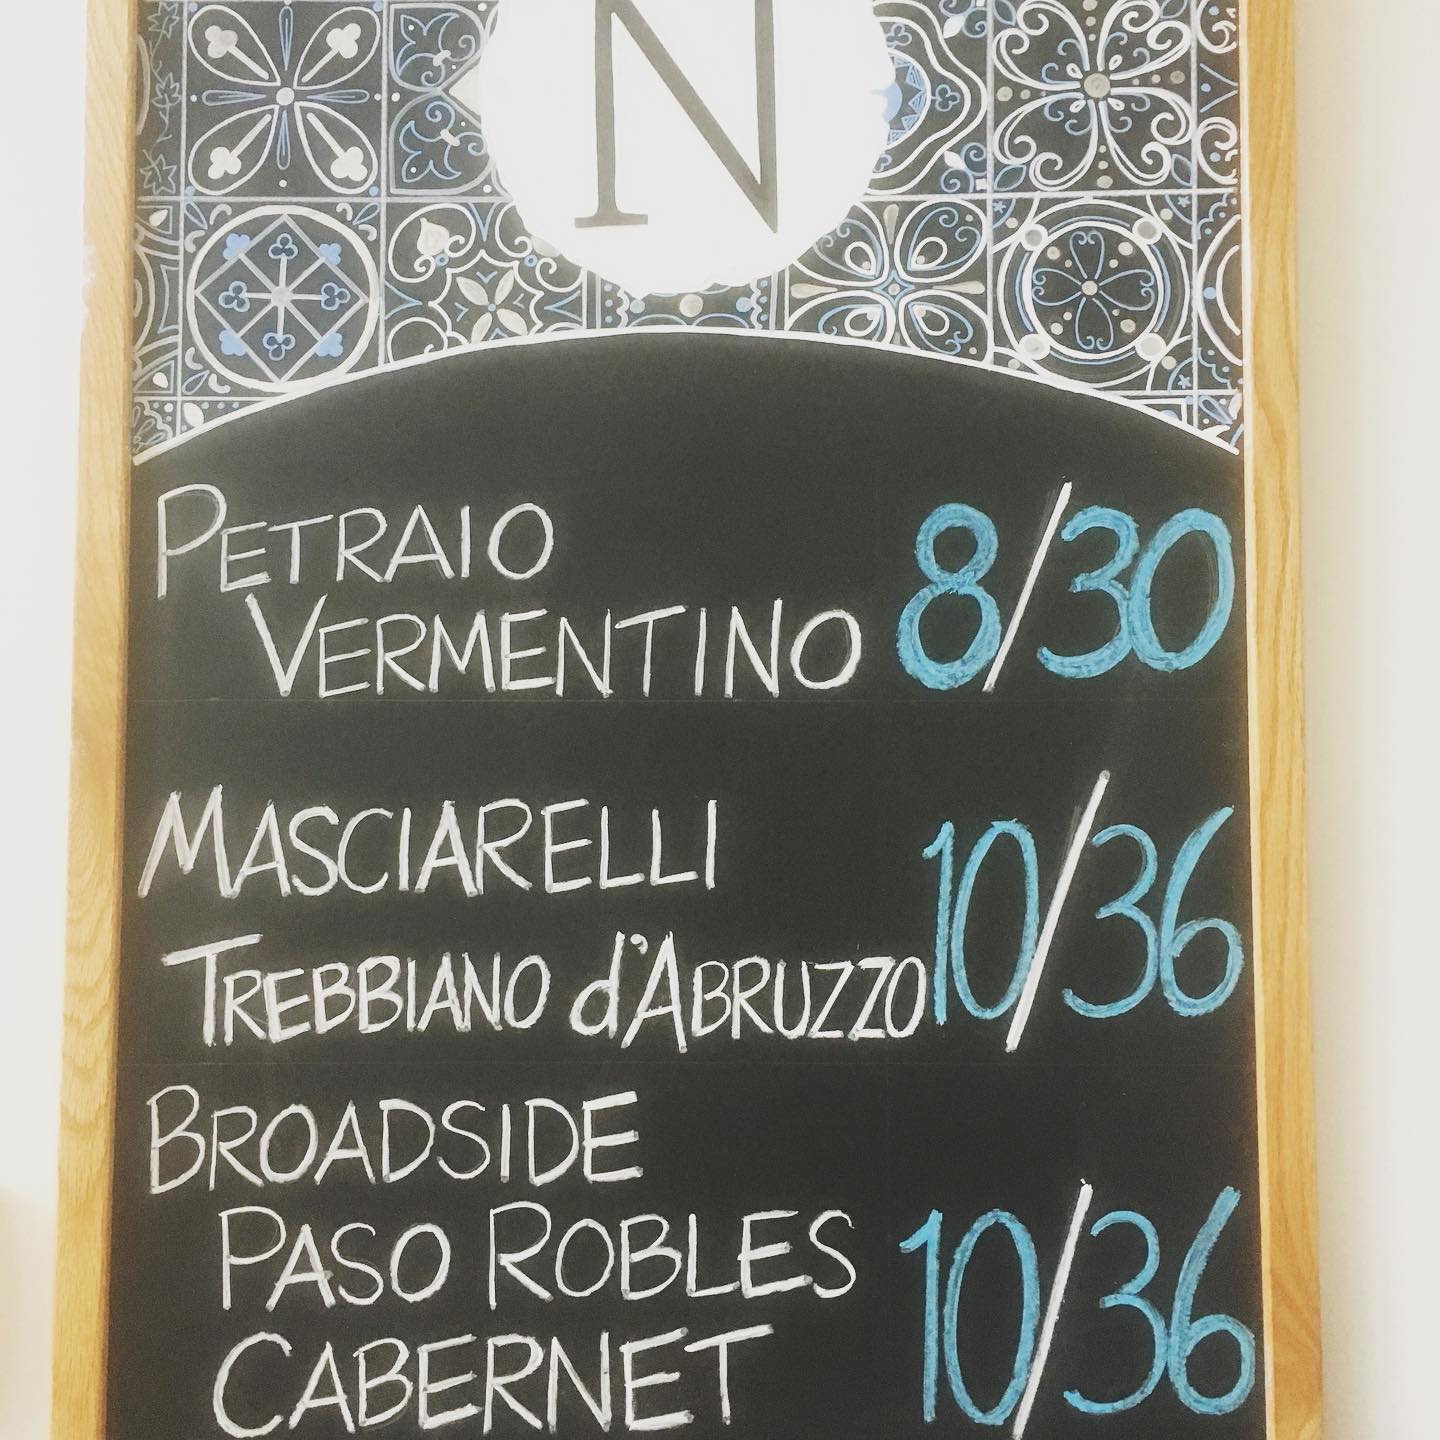 N
PETRAIO
VERMENTINO 8/30
MASCIARELLI
TREBBIANO d'ABRUZZO 10/36
BROADSIDE
PASO ROBLES
CABERNET 10/36